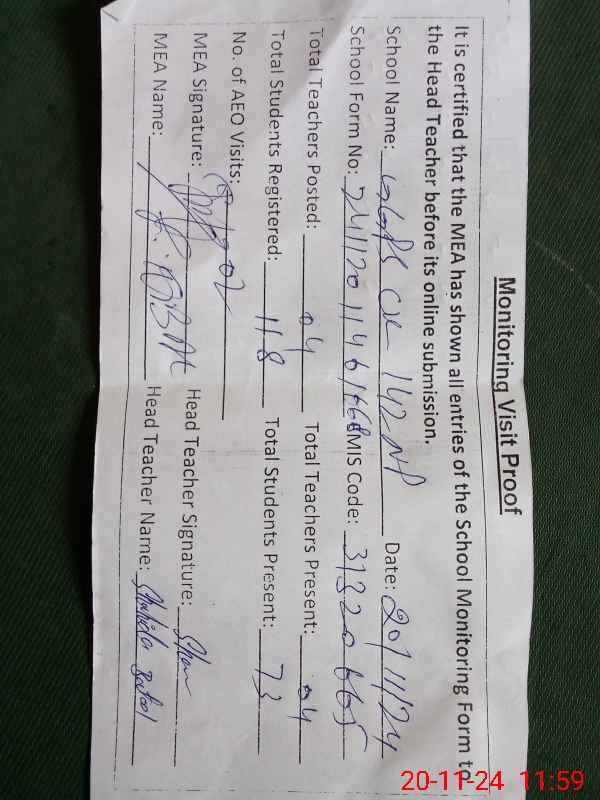 Monitoring Visit Proof
It is certified that the MEA has shown all entries of the School Monitoring Form to
the Head Teacher before its online submission.
School Name: GGPS CK 142 NP Date: 20/11/24
School Form No: EMIS Code: 31320665
Total Teachers Posted: 04 Total Teachers Present: 04
Total Students Registered: 118 Total Students Present: 73
No. of AEO Visits: 02
MEA Signature: Head Teacher Signature:
MEA Name: Head Teacher Name: Shahida Batool
20-11-24 11:59